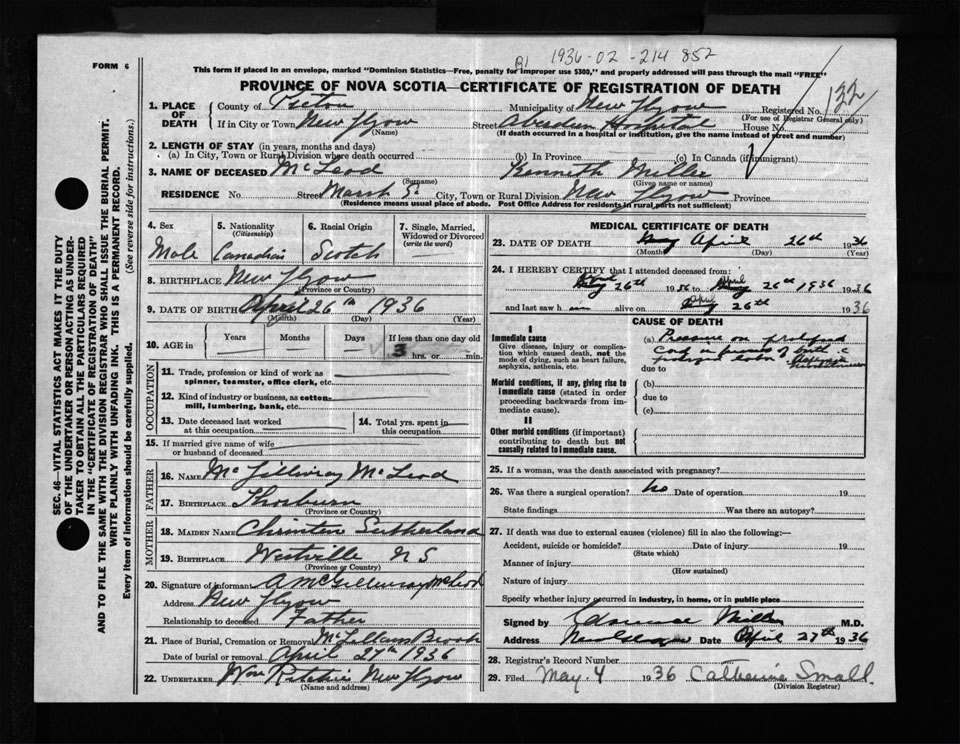 1936-02-214 852
FORM 6
This form if placed in an envelope, marked "Dominion Statistics—Free, penalty for improper use $300," and properly addressed will pass through the mail "FREE"
PROVINCE OF NOVA SCOTIA—CERTIFICATE OF REGISTRATION OF DEATH
1. PLACE OF DEATH
County of Pictou Municipality of New Glasgow Registered No. 122
(For use of Registrar General only)
If in City or Town New Glasgow Street Aberdeen Hospital House No.
(Name) (If death occurred in a hospital or institution, give the name instead of street and number)
2. LENGTH OF STAY (in years, months and days)
(a) In City, Town or Rural Division where death occurred (b) In Province (c) In Canada (if immigrant)
3. NAME OF DECEASED McLeod Kenneth Miller
(Surname) (Given name or names)
RESIDENCE No Street Marsh St. City, Town or Rural Division New Glasgow Province
(Residence means usual place of abode. Post Office Address for residents in rural parts not sufficient)
4. Sex Male
5. Nationality (Citizenship) Canadian
6. Racial Origin Scotch
7. Single, Married, Widowed or Divorced (write the word)
8. BIRTHPLACE New Glasgow
(Province or Country)
9. DATE OF BIRTH April 26th 1936
(Month) (Day) (Year)
10. AGE in Years Months Days If less than one day old
3 hrs. or min.
OCCUPATION
11. Trade, profession or kind of work as spinner, teamster, office clerk, etc.
12. Kind of industry or business, as cotton-mill, lumbering, bank, etc.
13. Date deceased last worked at this occupation
14. Total yrs. spent in this occupation
15. If married give name of wife or husband of deceased
FATHER
16. NAME McGillivray McLeod
17. BIRTHPLACE Thorburn
(Province or Country)
MOTHER
18. MAIDEN NAME Christene Sutherland
19. BIRTHPLACE Westville N S
(Province or Country)
20. Signature of informant A McGillivray McLeod
Address New Glasgow
Relationship to deceased Father
21. Place of Burial, Cremation or Removal McLellans Brook
Date of burial or removal April 27th 1936
22. UNDERTAKER Wm Ritchie New Glasgow
(Name and address)
MEDICAL CERTIFICATE OF DEATH
23. DATE OF DEATH April 26th 1936
(Month) (Day) (Year)
24. I HEREBY CERTIFY that I attended deceased from:
April 26th 1936 April 26th 1936 1936
and last saw h alive on April 26th 1936
CAUSE OF DEATH
I
Immediate cause
Give disease, injury or complication which caused death, not the mode of dying, such as heart failure, asphyxia, asthenia, etc.
(a) Pressure on prolapsed
due to
Morbid conditions, if any, giving rise to immediate cause (stated in order proceeding backwards from immediate cause).
(b)
due to
(c)
II
Other morbid conditions (if important) contributing to death but not causally related to immediate cause.
25. If a woman, was the death associated with pregnancy?
26. Was there a surgical operation? no Date of operation 19
State findings Was there an autopsy?
27. If death was due to external causes (violence) fill in also the following:—
Accident, suicide or homicide? Date of injury 19
(State which)
Manner of injury
(How sustained)
Nature of injury
Specify whether injury occurred in industry, in home, or in public place
Signed by Clarence Miller M.D.
Address New Glasgow Date April 27th 1936
28. Registrar's Record Number
29. Filed May 4 1936 Catherine Small.
(Division Registrar)
SEC. 46—VITAL STATISTICS ACT MAKES IT THE DUTY
OF THE UNDERTAKER OR PERSON ACTING AS UNDER-
TAKER TO OBTAIN ALL THE PARTICULARS REQUIRED
IN THE "CERTIFICATE OF REGISTRATION OF DEATH"
AND TO FILE THE SAME WITH THE DIVISION REGISTRAR WHO SHALL ISSUE THE BURIAL PERMIT.
WRITE PLAINLY WITH UNFADING INK. THIS IS A PERMANENT RECORD.
Every item of information should be carefully supplied. (See reverse side for instructions.)